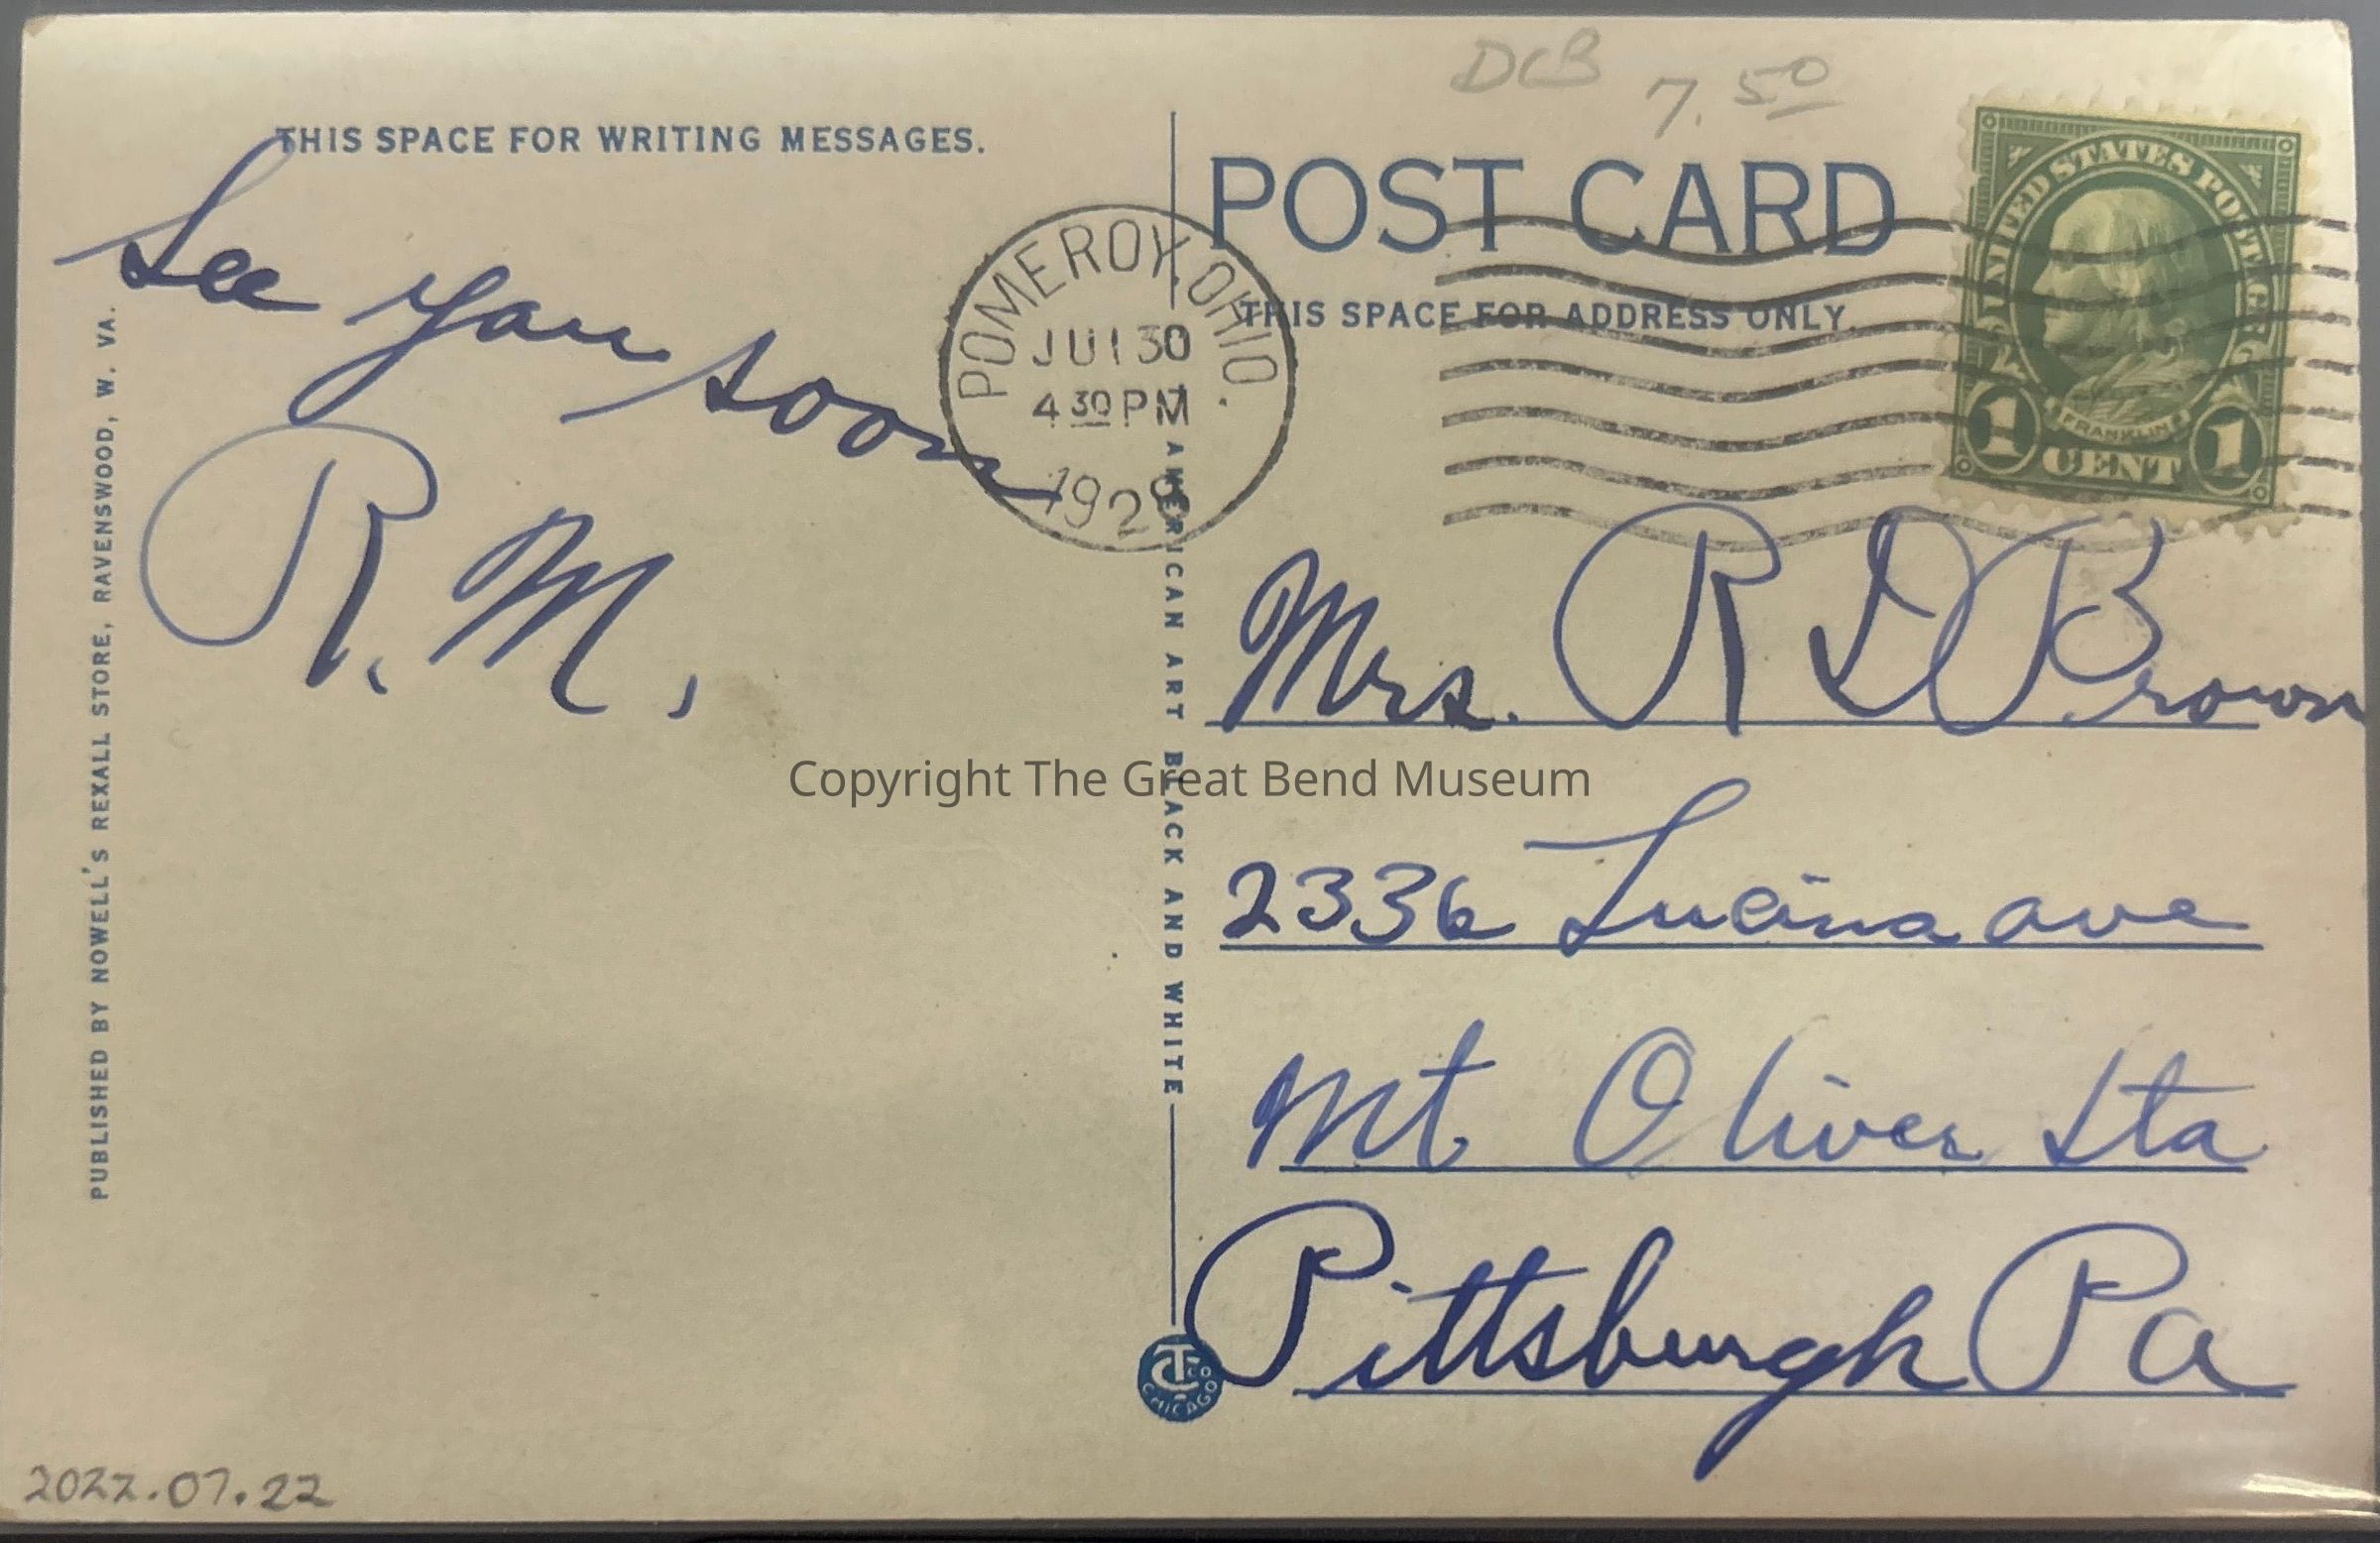 DCB
7.50
THIS SPACE FOR WRITING MESSAGES.
POST CARD
THIS SPACE FOR ADDRESS ONLY.
UNITED STATES POSTAGE
FRANKLIN
1 CENT 1
POMEROY, OHIO.
JUL 30
4 30 PM
192
See you soon
R. M.
Mrs. R D Brown
2336 Lucina ave
Mt. Oliver Sta
Pittsburgh Pa
PUBLISHED BY NOWELL'S REXALL STORE, RAVENSWOOD, W. VA.
AMERICAN ART BLACK AND WHITE
CHICAGO
Copyright The Great Bend Museum
2022.07.22